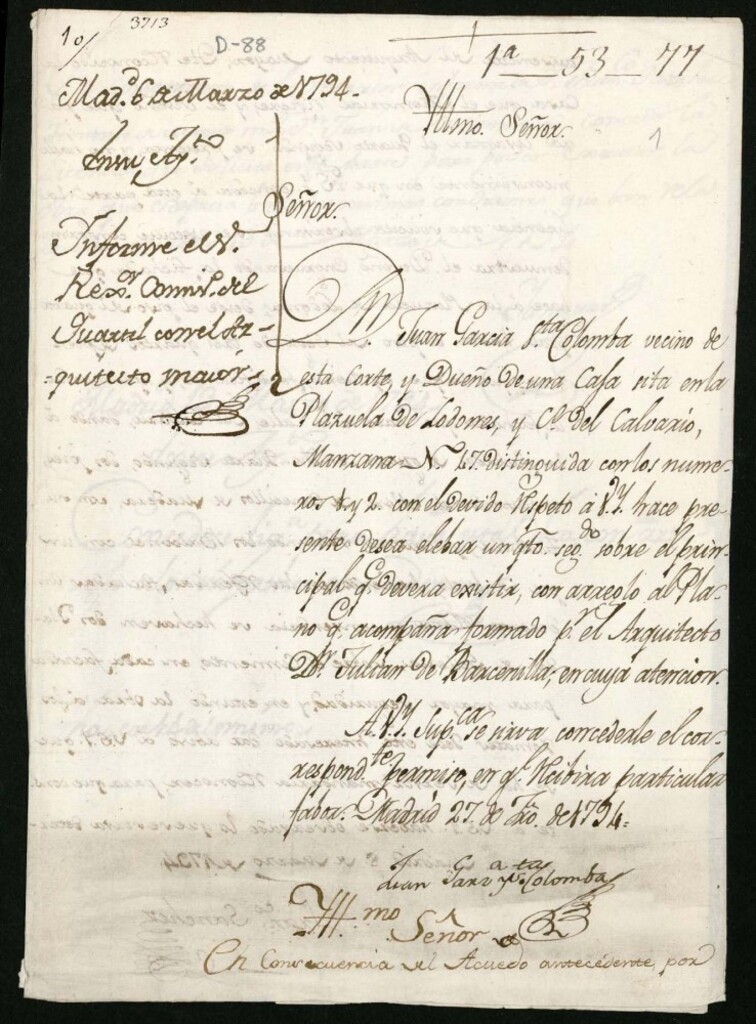 10/
3713
D-88
1ª 53 77
Mad.d 6 de Marzo de 1794.
Yllmo. Señor.
1
En su Ay.to
Señor.
Informe el S.r
Rex.or Comis.o del
Quartel con el Ar-
quitecto maior
Dn. Juan Garcia S.ta Colomba vecino de
esta Corte, y Dueño de una Casa sita en la
Plazuela de Lodones, y C.e del Calvario,
Manzana N. 47. distinguida con los nume-
ros 1 y 2. con el devido respeto á V.Y. hace pre-
sente desea elebar un q.to seg.do sobre el prin-
cipal q.e devera existir, con arreglo al Pla-
no q.e acompaña formado p.r el Arquitecto
Dn. Julian de Barcenilla, en cuya atencion.
A V.Y. sup.ca se sirva, concederle el cor-
respond.te permiso, en q.e recibira particular
fabor. Madrid 27. de Fro. de 1794.
Juan Garz.a y S.ta Colomba
Yll.mo Señor
En Consecuencia del Acuerdo antecedente, por